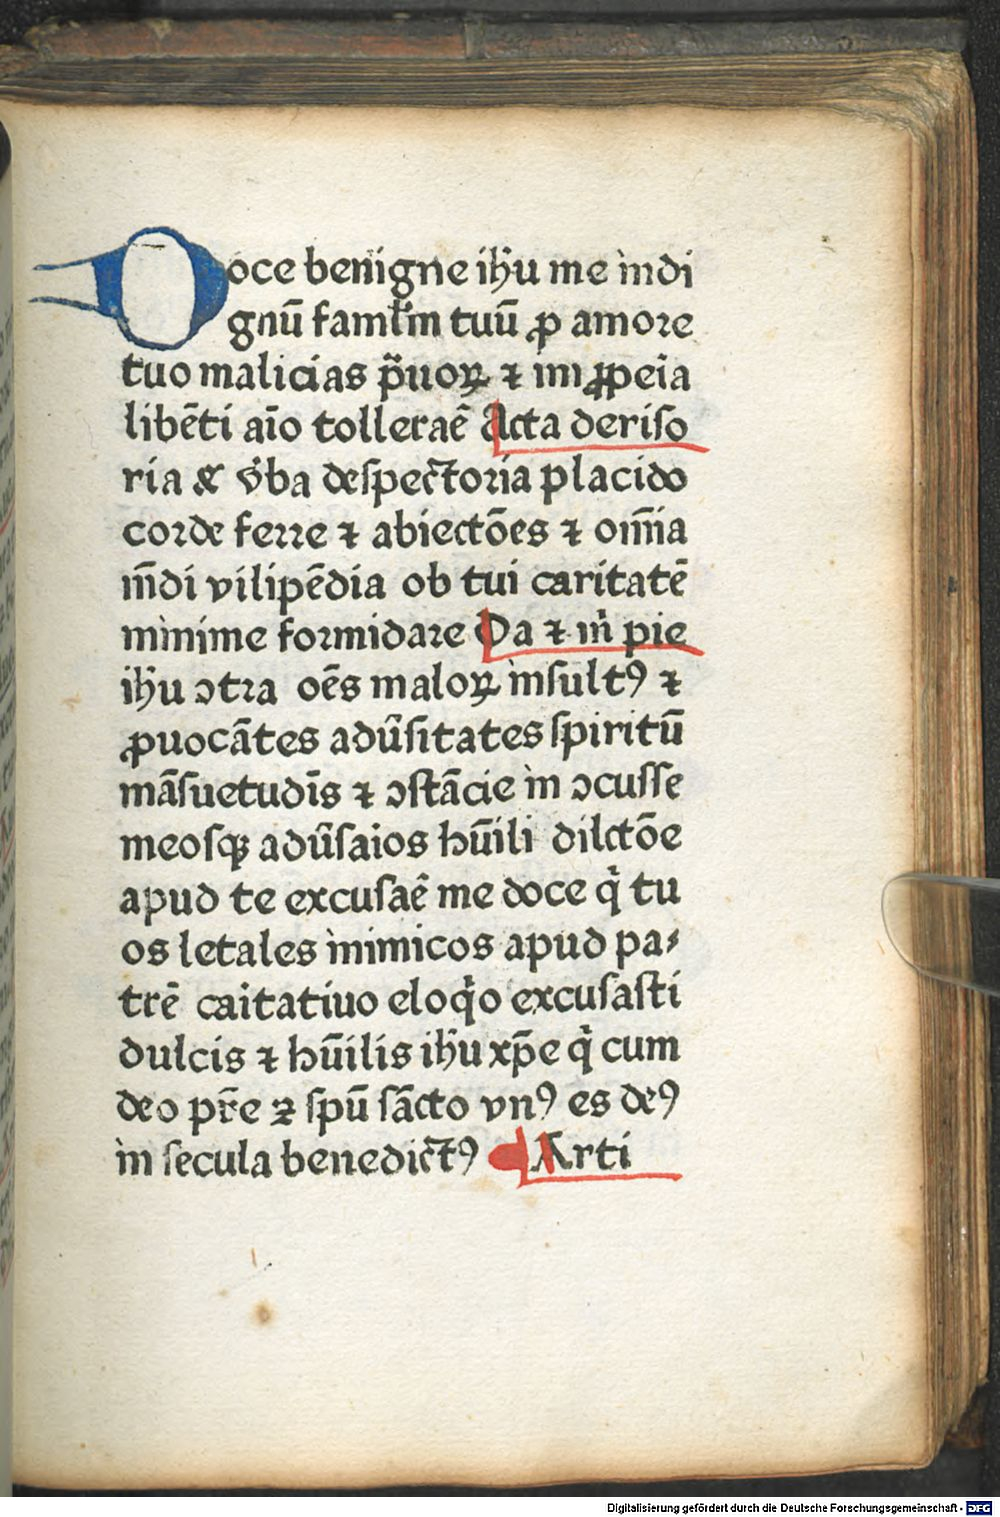 Doce benigne ih̄u me indi
gnū famľm tuū ꝓ amore
tuo malicias p̄uoꝝ ⁊ im ꝓpeīa
libēti aīo tolleraē Acta deriſo
ria & v̄ba deſpect̄oria placido
corde ferre ⁊ abiectōes ⁊ om̄ia
m̄di vilipēdia ob tui caritatē
minime formidare Da ⁊ m̍ pie
ih̄u ɔtra oēs maloꝝ inſultꝰ ⁊
ꝓuocātes adūſitates spiritū
māſuetudīs ⁊ ɔſtācie in ɔcuſſe
meoſqꝫ adūſaios hūili dilctōe
apud te excuſaē me doce q̍ tu
os letales inimicos apud pa⸗
trē caitatiuo eloq̍o excuſaſti
dulcis ⁊ hūilis ih̄u xp̄e q̍ cum
deo pr̄e ⁊ ſpū ſācto vnꝰ es deꝰ
in ſecula benedict̄ꝰ ¶ Arti
Digitalisierung gefördert durch die Deutsche Forschungsgemeinschaft - DFG